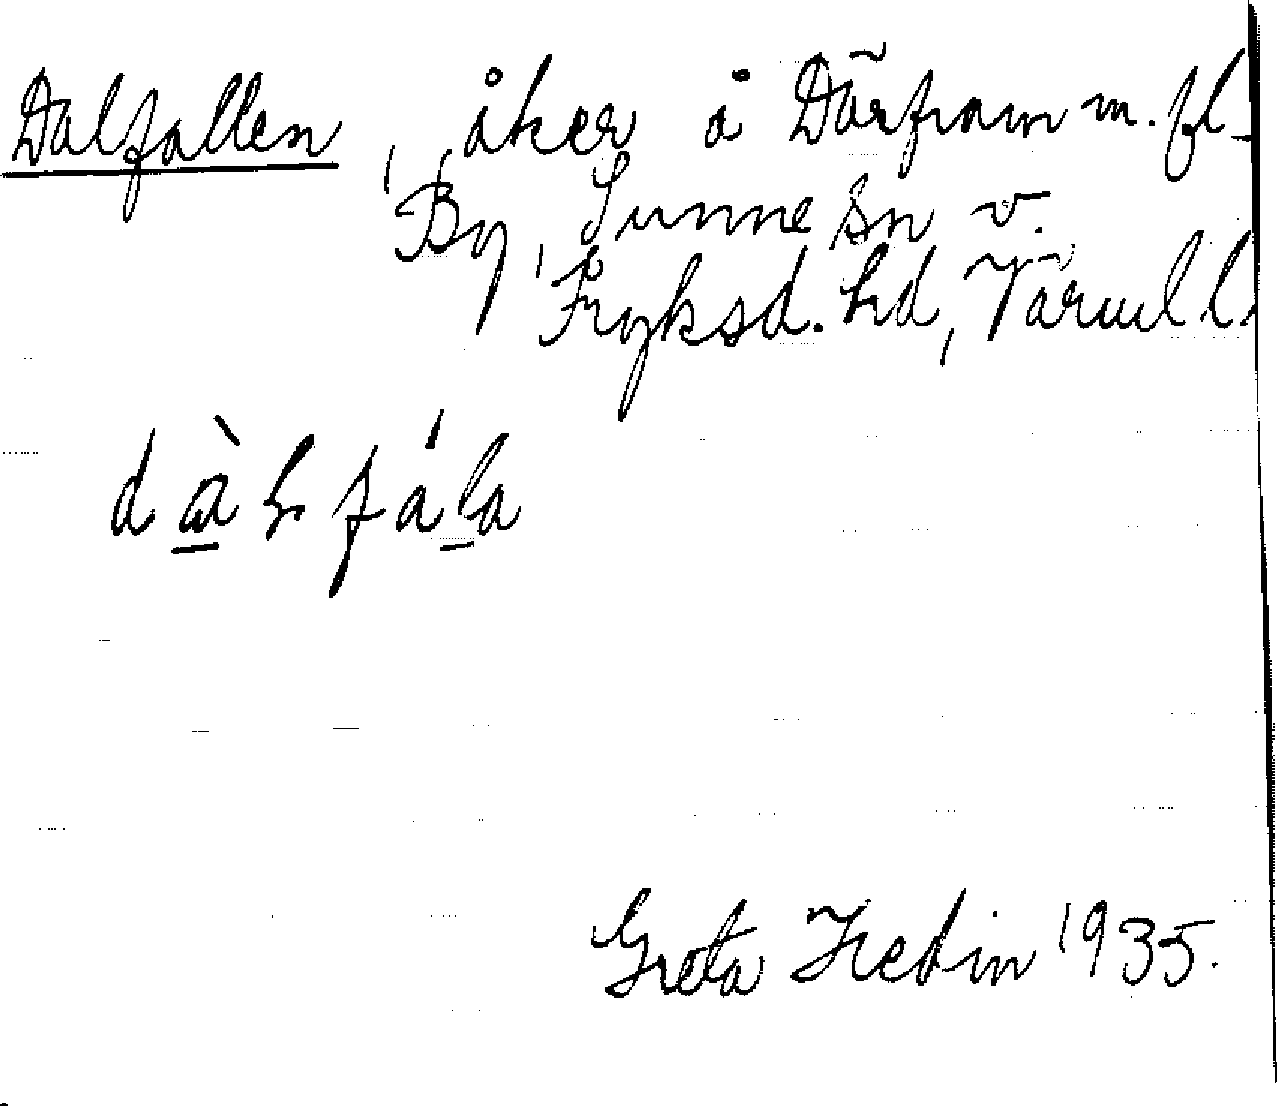 Dalfallen, åker å Därfram m. fl.
By, Sunne sn v.
Fryksd. hd, Värml l.
Greta Hedin 1935.